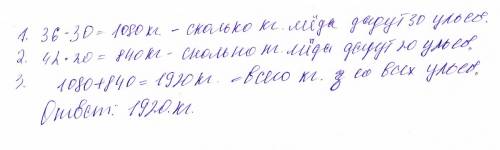 1. 36·30=1080 кг. – сколько кг. мёда дадут 30 ульев.
2. 42·20=840 кг – сколько кг. мёда дадут 20 ульев.
3. 1080+840=1920 кг. – всего кг. со всех ульев.
Ответ: 1920.кг.